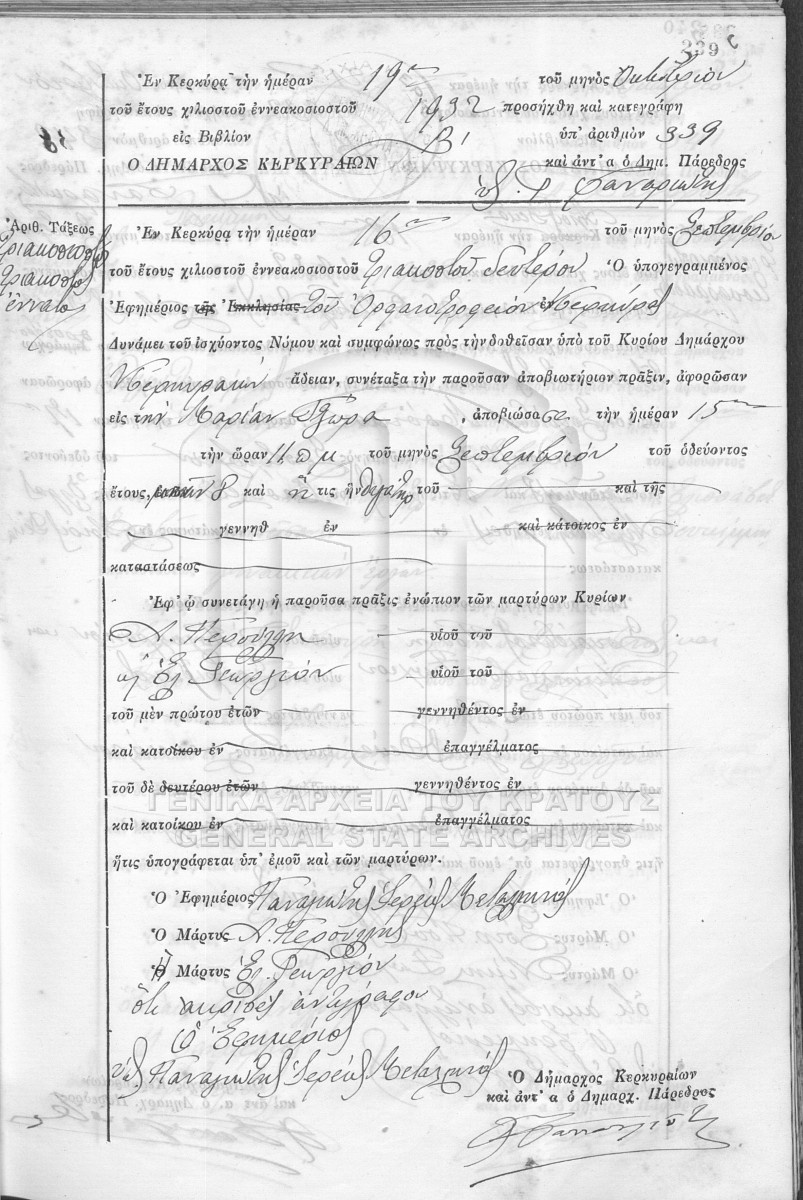 339
Ἐν Κερκύρᾳ τὴν ἡμέραν 19ην τοῦ μηνὸς Ὀκτωβρίου
τοῦ ἔτους χιλιοστοῦ ἐννεακοσιοστοῦ 1932 προσήχθη καὶ κατεγράφη
εἰς Βιβλίον Β' ὑπ' ἀριθμὸν 339
Ο ΔΗΜΑΡΧΟΣ ΚΕΡΚΥΡΑΙΩΝ καὶ ἀντ' α ὁ Δημ. Πάρεδρος
Ἀριθ. Τάξεως
τριακοστός
ἔννατος
Ἐν Κερκύρᾳ τὴν ἡμέραν 16ην τοῦ μηνὸς Σεπτεμβρίου
τοῦ ἔτους χιλιοστοῦ ἐννεακοσιοστοῦ τριακοστοῦ δευτέρου Ὁ ὑπογεγραμμένος
Ἐφημέριος τῆς Ἐκκλησίας τοῦ Ὀρφανοτροφείου ἐν Κερκύρᾳ
Δυνάμει τοῦ ἰσχύοντος Νόμου καὶ συμφώνως πρὸς τὴν δοθεῖσαν ὑπὸ τοῦ Κυρίου Δημάρχου
Κερκυραίων ἄδειαν, συνέταξα τὴν παροῦσαν ἀποβιωτήριον πρᾶξιν, ἀφορῶσαν
εἰς τὴν Μαρίαν, ἀποβιώσασα τὴν ἡμέραν 15ην
τὴν ὥραν 11 π μ τοῦ μηνὸς Σεπτεμβρίου τοῦ ὁδεύοντος
ἔτους, καὶ ἥ τις ἦν θυγάτηρ τοῦ καὶ τῆς
γεννηθ ἐν καὶ κάτοικος ἐν
καταστάσεως
Ἐφ' ᾧ συνετάγη ἡ παροῦσα πρᾶξις ἐνώπιον τῶν μαρτύρων Κυρίων
Α. Περούλη υἱοῦ τοῦ
Ἑλ Γεωργίου υἱοῦ τοῦ
τοῦ μὲν πρώτου ἐτῶν γεννηθέντος ἐν
καὶ κατοίκου ἐν ἐπαγγέλματος
τοῦ δὲ δευτέρου ἐτῶν γεννηθέντος ἐν
ΓΕΝΙΚΑ ΑΡΧΕΙΑ ΤΟΥ ΚΡΑΤΟΥΣ
καὶ κατοίκου ἐν ἐπαγγέλματος
GENERAL STATE ARCHIVES
ἥτις ὑπογράφεται ὑπ' ἐμοῦ καὶ τῶν μαρτύρων.
Ὁ Ἐφημέριος Παναγιώτης Ἱερεὺς Μεταλληνός
Ὁ Μάρτυς Α. Περούλης
Ἡ Μάρτυς Ἑλ. Γεωργίου
Ὅτι ἀκριβὲς ἀντίγραφον
Ὁ Ἐφημέριος
Παναγιώτης Ἱερεὺς Μεταλληνός
Ὁ Δήμαρχος Κερκυραίων
καὶ ἀντ' α ὁ Δημαρχ. Πάρεδρος